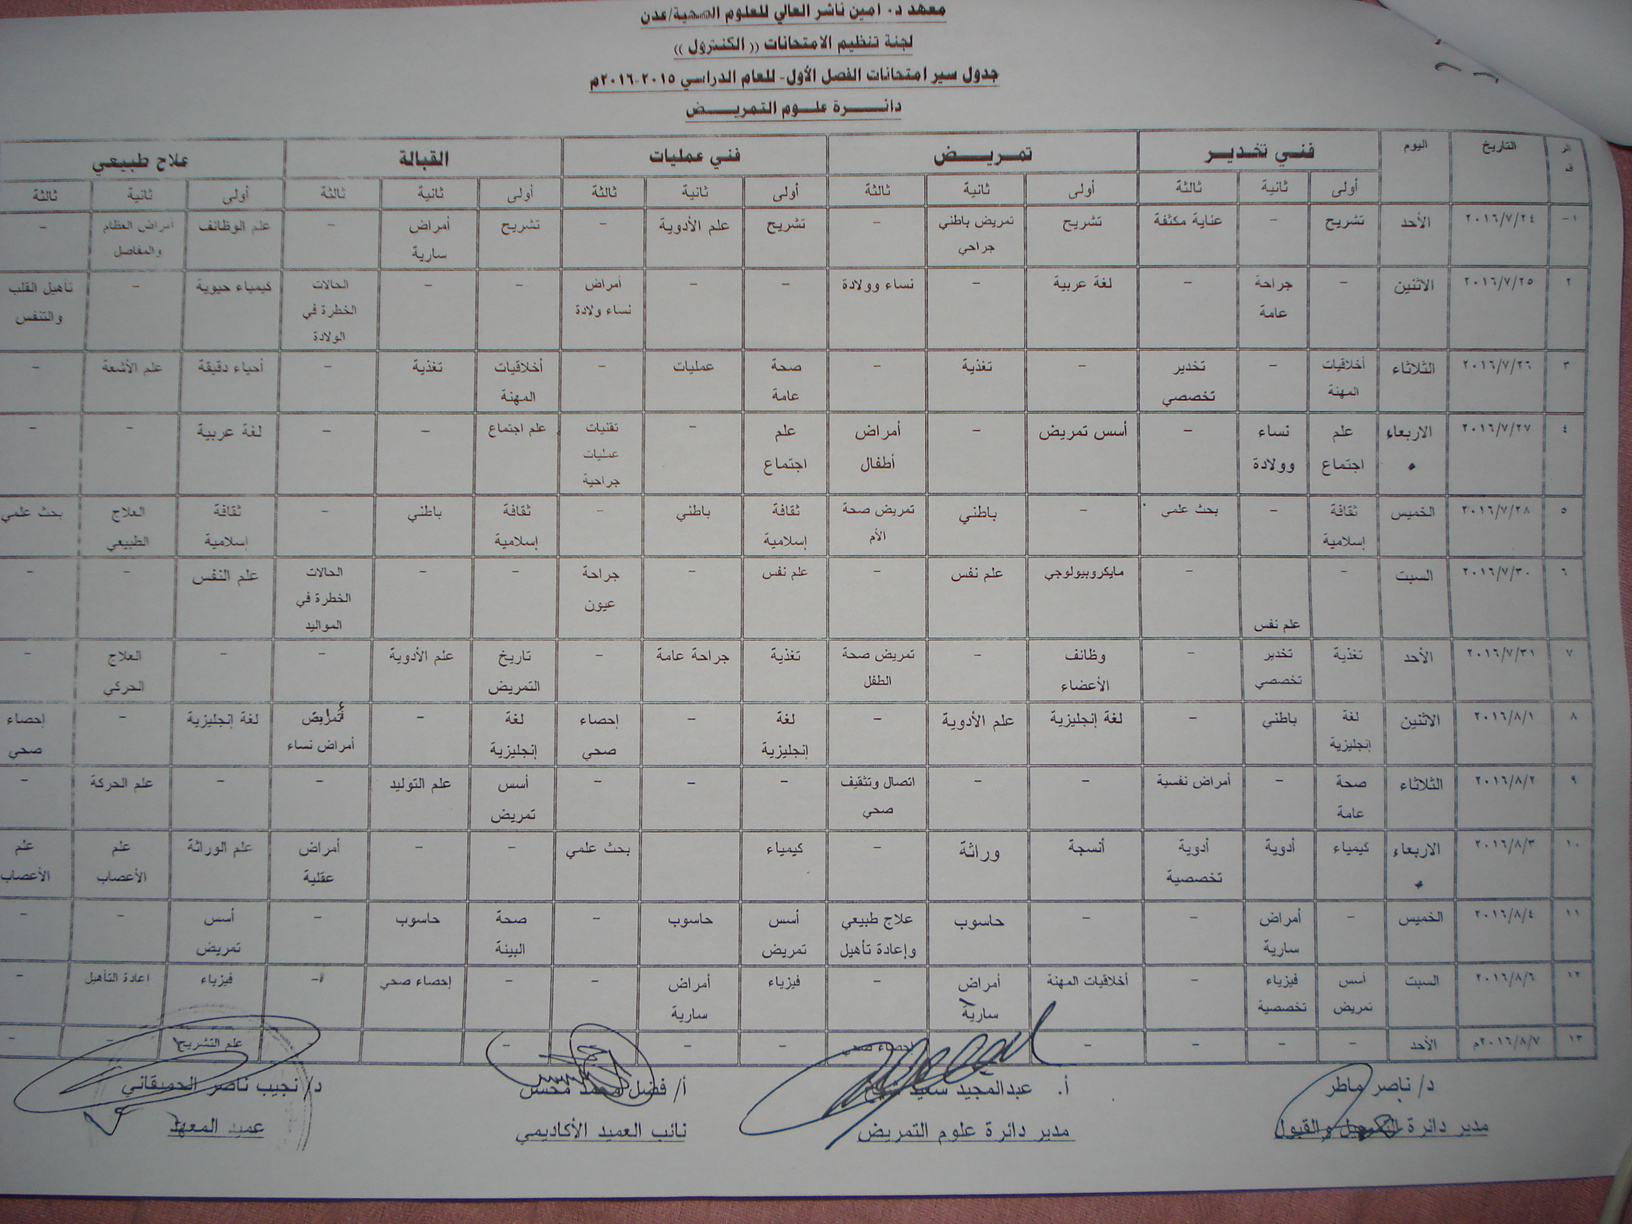 معهد د. أمين ناشر العالي للعلوم الصحية/عدن
لجنة تنظيم الامتحانات (( الكنترول ))
جدول سير امتحانات الفصل الأول- للعام الدراسي ٢٠١٥-٢٠١٦م
دائـــرة علــوم التمريــض
الرقم | التاريخ | اليوم | فني تخدير | تمـريـــض | فني عمليات | القبالة | علاج طبيعي
أولى | ثانية | ثالثة | أولى | ثانية | ثالثة | أولى | ثانية | ثالثة | أولى | ثانية | ثالثة | أولى | ثانية | ثالثة
١- | ٢٠١٦/٧/٢٤ | الأحد | تشريح | - | عناية مكثفة | تشريح | تمريض باطني جراحي | - | تشريح | علم الأدوية | - | تشريح | أمراض سارية | - | علم الوظائف | أمراض العظام والمفاصل | -
٢ | ٢٠١٦/٧/٢٥ | الاثنين | - | جراحة عامة | - | لغة عربية | - | نساء وولادة | - | - | أمراض نساء ولادة | - | - | الحالات الخطرة في الولادة | كيمياء حيوية | - | تأهيل القلب والتنفس
٣ | ٢٠١٦/٧/٢٦ | الثلاثاء | أخلاقيات المهنة | - | تخدير تخصصي | - | تغذية | - | صحة عامة | عمليات | - | أخلاقيات المهنة | تغذية | - | أحياء دقيقة | علم الأشعة | -
٤ | ٢٠١٦/٧/٢٧ | الاربعاء | علم اجتماع | نساء وولادة | - | أسس تمريض | - | أمراض أطفال | علم اجتماع | - | تقنيات عمليات جراحية | علم اجتماع | - | - | لغة عربية | - | -
٥ | ٢٠١٦/٧/٢٨ | الخميس | ثقافة إسلامية | - | بحث علمي | - | باطني | تمريض صحة الأم | ثقافة إسلامية | باطني | - | ثقافة إسلامية | باطني | - | ثقافة إسلامية | العلاج الطبيعي | بحث علمي
٦ | ٢٠١٦/٧/٣٠ | السبت | - | علم نفس | - | مايكروبيولوجي | علم نفس | - | علم نفس | - | جراحة عيون | - | - | الحالات الخطرة في المواليد | علم النفس | - | -
٧ | ٢٠١٦/٧/٣١ | الأحد | تغذية | تخدير تخصصي | - | وظائف الأعضاء | - | تمريض صحة الطفل | تغذية | جراحة عامة | - | تاريخ التمريض | علم الأدوية | - | - | العلاج الحركي | -
٨ | ٢٠١٦/٨/١ | الاثنين | لغة إنجليزية | باطني | - | لغة إنجليزية | علم الأدوية | - | لغة إنجليزية | - | إحصاء صحي | لغة إنجليزية | - | تمريض أمراض نساء | لغة إنجليزية | - | إحصاء صحي
٩ | ٢٠١٦/٨/٢ | الثلاثاء | صحة عامة | - | أمراض نفسية | - | - | اتصال وتثقيف صحي | - | - | - | أسس تمريض | علم التوليد | - | - | علم الحركة | -
١٠ | ٢٠١٦/٨/٣ | الاربعاء | كيمياء | أدوية | أدوية تخصصية | أنسجة | وراثة | - | كيمياء | | بحث علمي | - | - | أمراض عقلية | علم الوراثة | علم الأعصاب | علم الأعصاب
١١ | ٢٠١٦/٨/٤ | الخميس | - | أمراض سارية | - | - | حاسوب | علاج طبيعي وإعادة تأهيل | أسس تمريض | حاسوب | - | صحة البيئة | حاسوب | - | أسس تمريض | - | -
١٢ | ٢٠١٦/٨/٦ | السبت | أسس تمريض | فيزياء تخصصية | - | أخلاقيات المهنة | أمراض سارية | - | فيزياء | أمراض سارية | - | - | إحصاء صحي | - | فيزياء | اعادة التأهيل | -
١٣ | ٢٠١٦/٨/٧م | الأحد | - | - | - | - | | إحصاء صحي | - | - | | - | | | علم التشريح | - | -
د/ ناصر ماطر | أ. عبدالمجيد سعيد | أ/ فضل محمد محسن | د/ نجيب ناصر الحميقاني
مدير دائرة التسجيل والقبول | مدير دائرة علوم التمريض | نائب العميد الأكاديمي | عميد المعهد